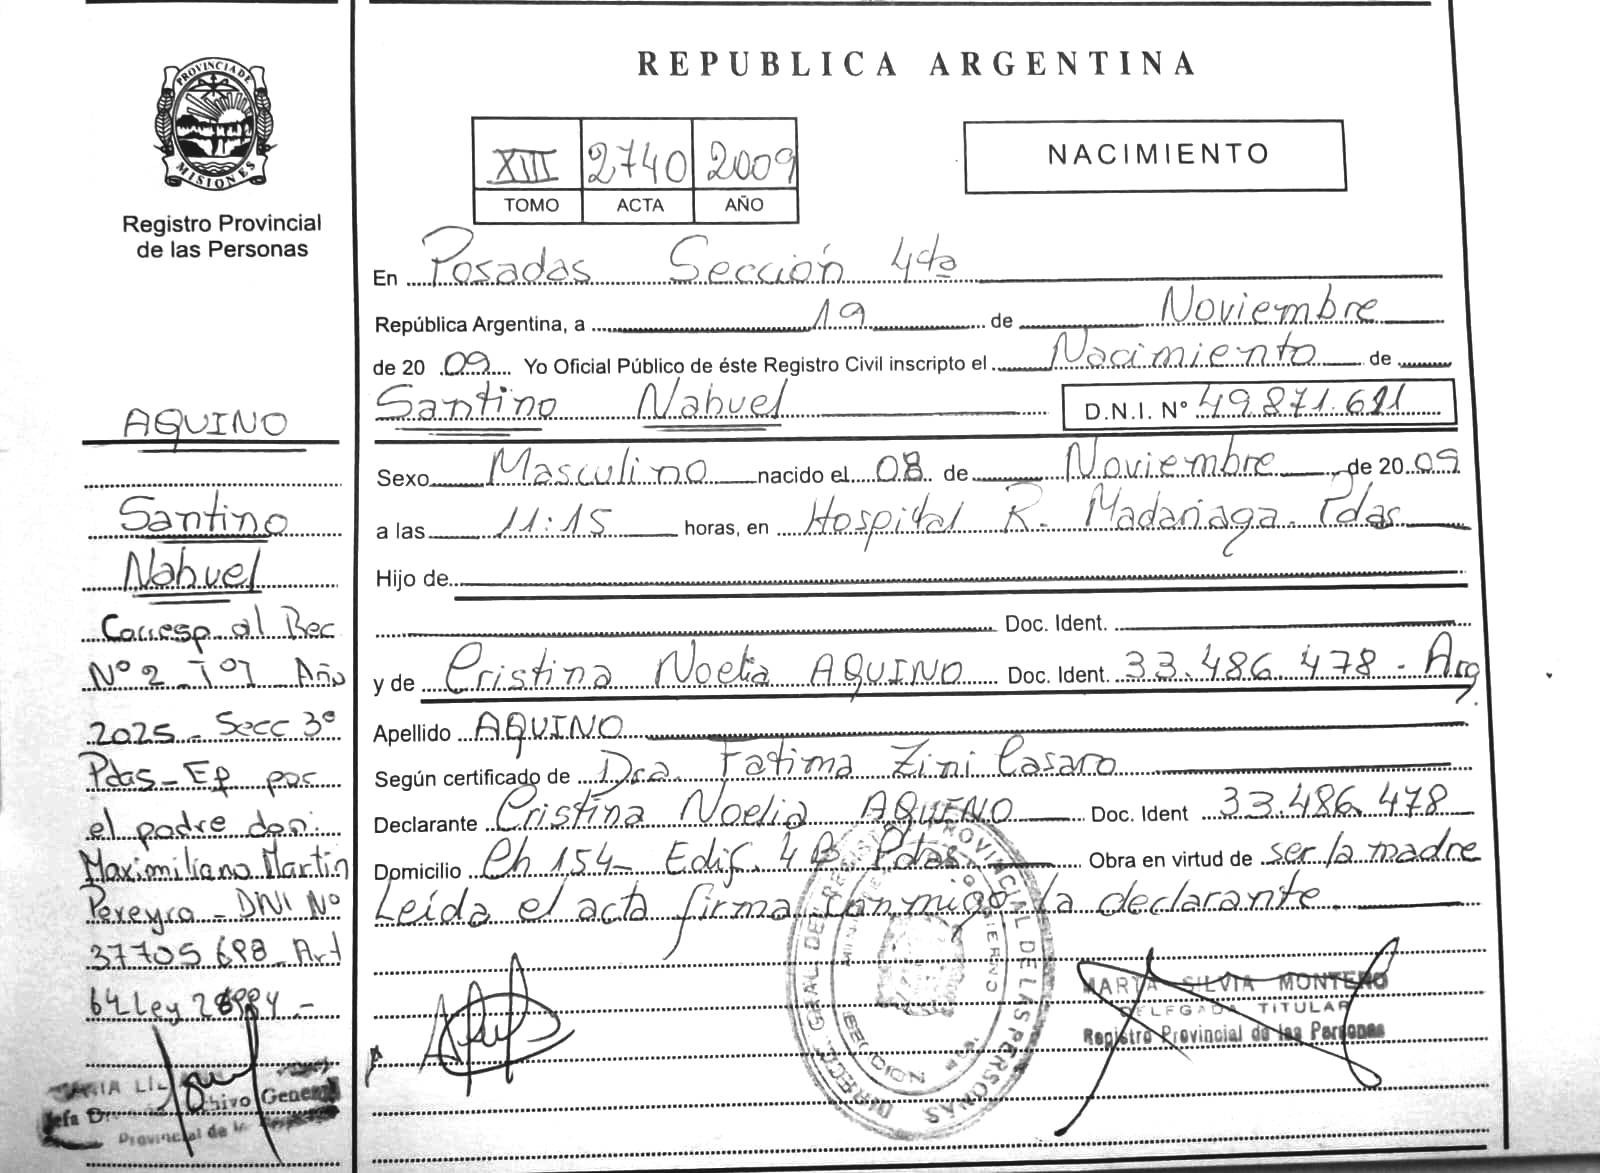 PROVINCIA DE
MISIONES
Registro Provincial
de las Personas
AQUINO
Santino
Nahuel
Corresp al Rec
Nº 2 - Tº I Año
2025 - Secc 3º
Pdas - Ef por
el padre don:
Maximiliano Martin
Pereyra - DNI Nº
37705698 - Art
64 Ley 26994 -
Provincial de
REPUBLICA ARGENTINA
XIII 2740 2009
TOMO ACTA AÑO
NACIMIENTO
En Posadas Sección 4ta
República Argentina, a 19 de Noviembre
de 20 09 Yo Oficial Público de éste Registro Civil inscripto el Nacimiento de
Santino Nahuel D.N.I. Nº 49.871.611
Sexo Masculino nacido el 08 de Noviembre de 20 09
a las 11:15 horas, en Hospital R. Madariaga. Pdas
Hijo de
Doc. Ident.
y de Cristina Noelia AQUINO Doc. Ident. 33.486.478 - Arg.
Apellido AQUINO
Según certificado de Dra. Fatima Zini Casaro
Declarante Cristina Noelia AQUINO Doc. Ident 33.486.478
Domicilio Ch 154 - Edif. 4B Pdas. Obra en virtud de ser la madre
Leída el acta firma conmigo la declarante.
MARTA SILVIA MONTERO
DELEGADA TITULAR
Registro Provincial de las Personas